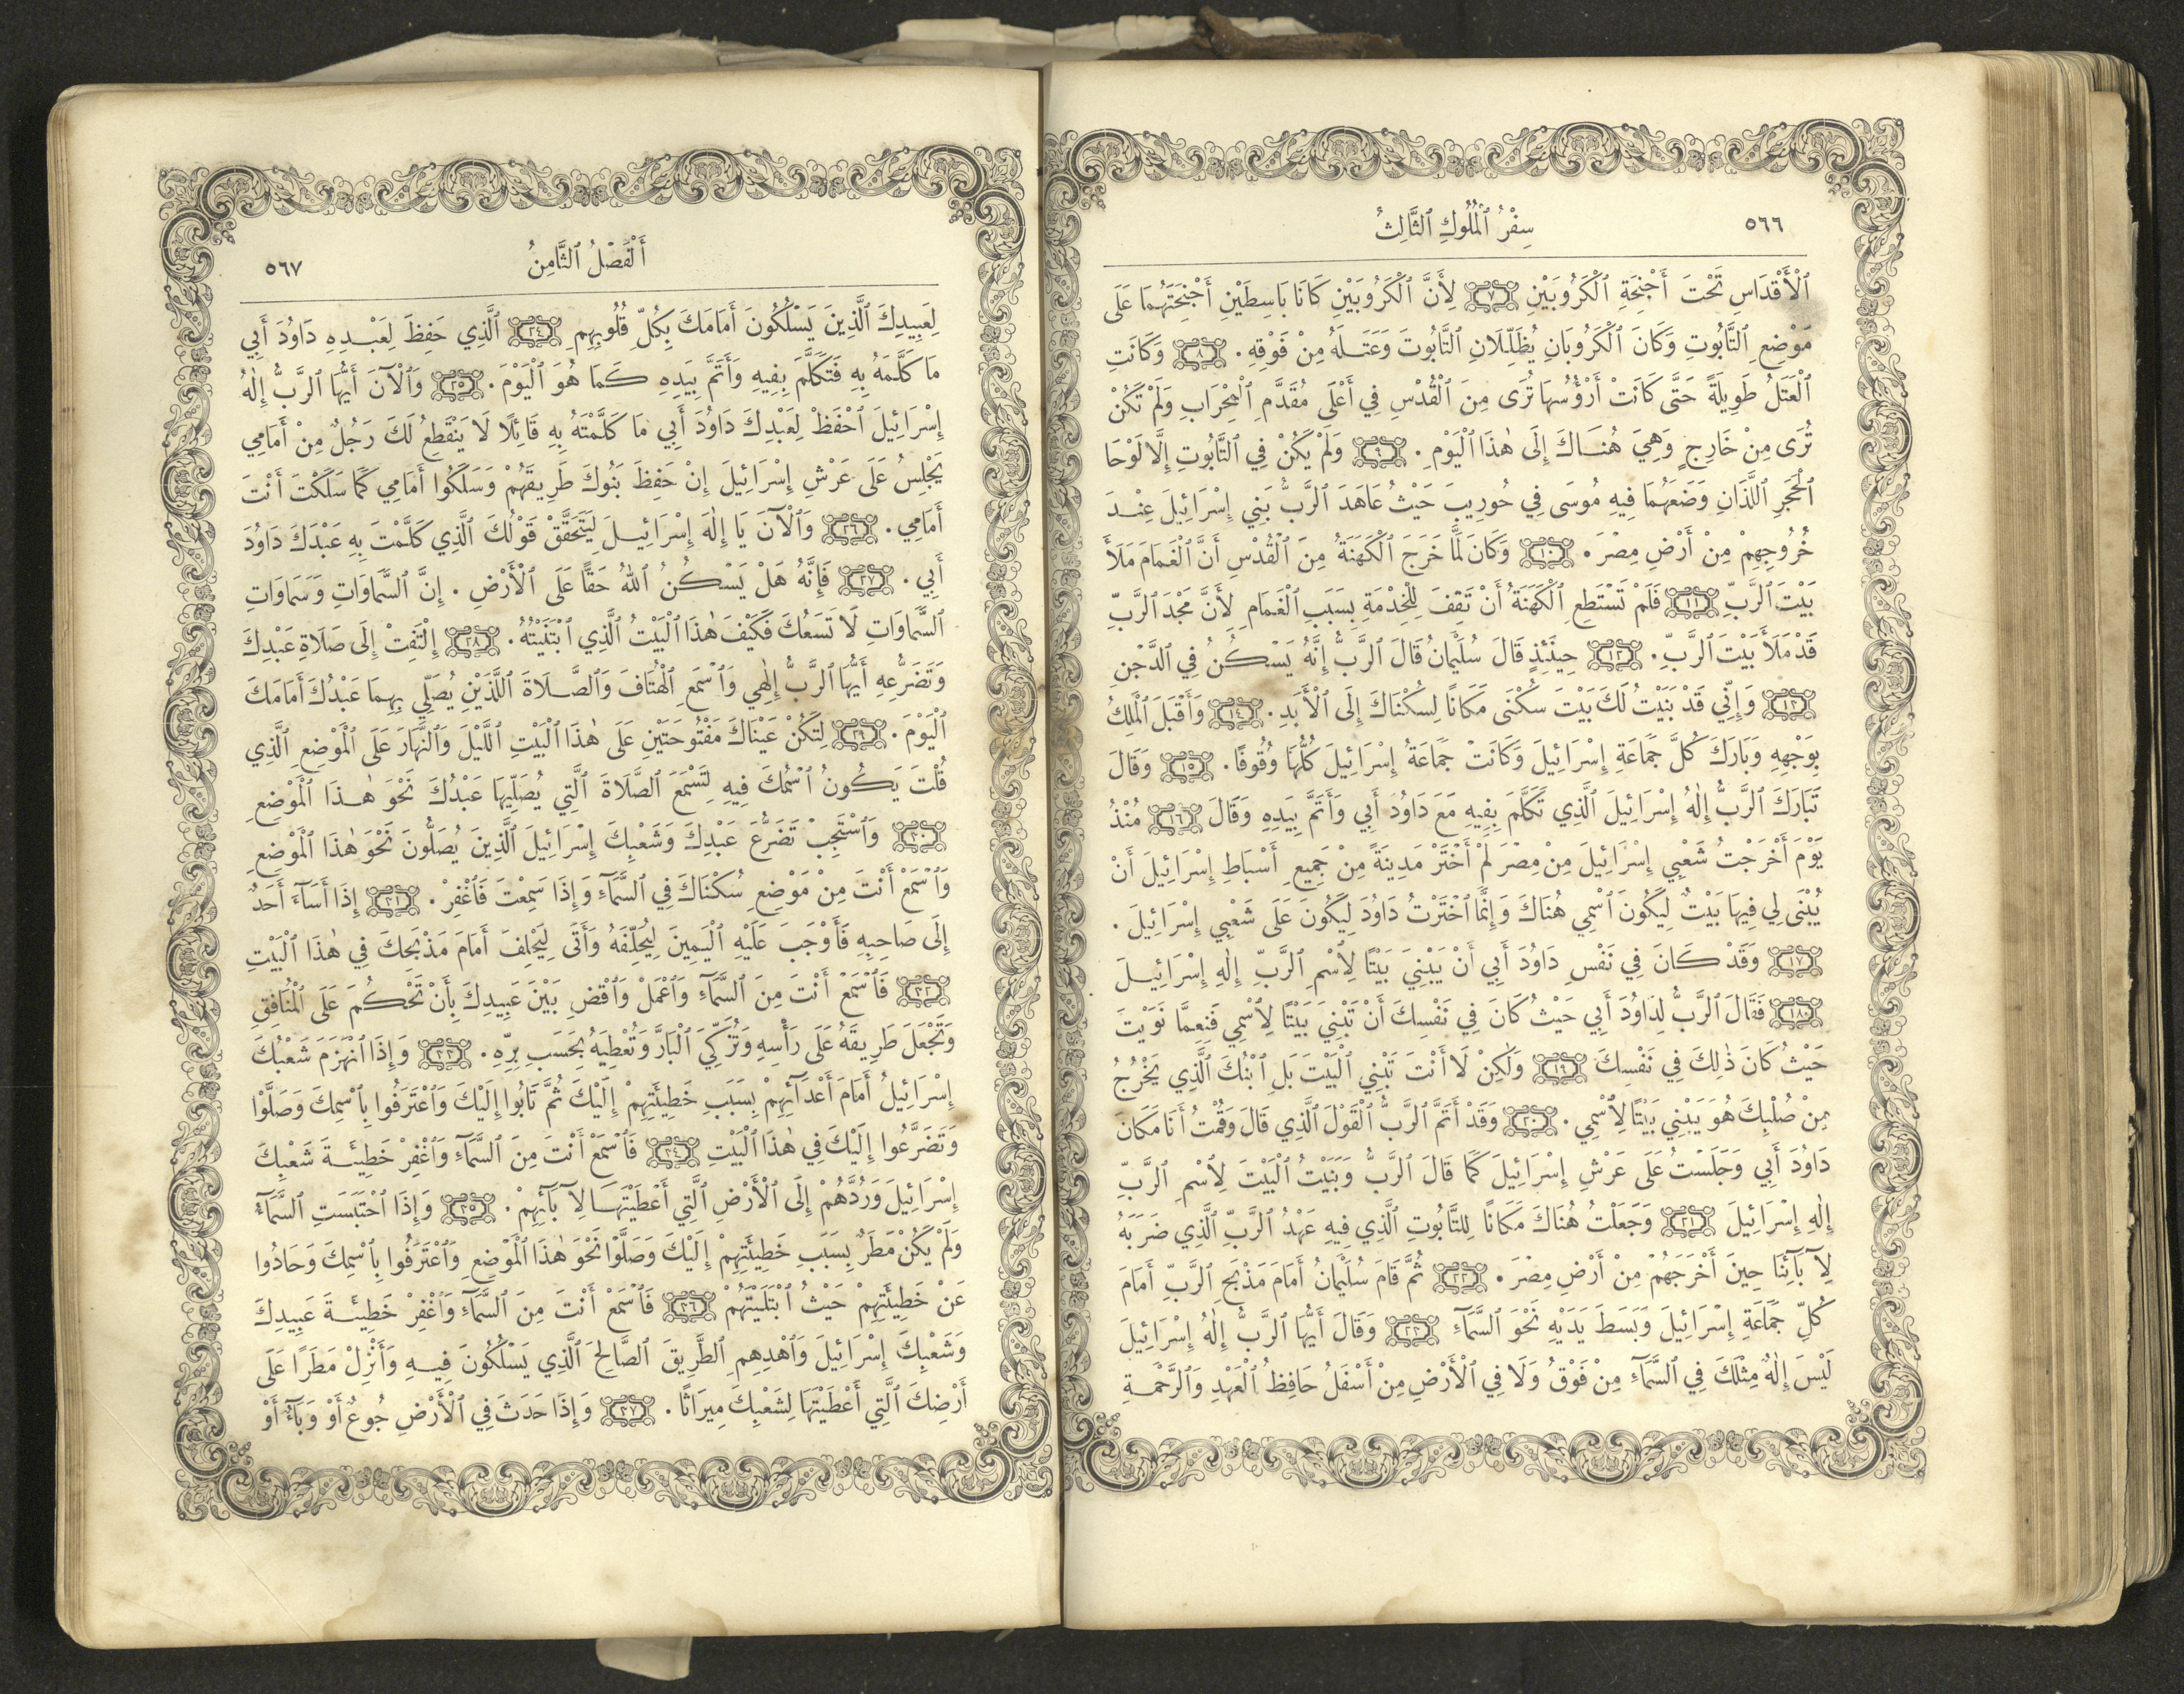 ٥٦٦
سِفْرُ ٱلْمُلُوكِ ٱلثَّالِثُ
ٱلْأَقْدَاسِ تَحْتَ أَجْنِحَةِ ٱلْكَرُوبَيْنِ ٧ لِأَنَّ ٱلْكَرُوبَيْنِ كَانَا بَاسِطَيْنِ أَجْنِحَتَهُمَا عَلَى
مَوْضِعِ ٱلتَّابُوتِ وَكَانَ ٱلْكَرُوبَانِ يُظَلِّلَانِ ٱلتَّابُوتَ وَعَتَلَهُ مِنْ فَوْقِهِ. ٨ وَكَانَتِ
ٱلْعَتَلُ طَوِيلَةً حَتَّى كَانَتْ أَرْؤُسُهَا تُرَى مِنَ ٱلْقُدْسِ فِي أَعْلَى مُقَدَّمِ ٱلْمِحْرَابِ وَلَمْ تَكُنْ
تُرَى مِنْ خَارِجٍ وَهِيَ هُنَاكَ إِلَى هٰذَا ٱلْيَوْمِ. ٩ وَلَمْ يَكُنْ فِي ٱلتَّابُوتِ إِلَّا لَوْحَا
ٱلْحَجَرِ ٱللَّذَانِ وَضَعَهُمَا فِيهِ مُوسَى فِي حُورِيبَ حَيْثُ عَاهَدَ ٱلرَّبُّ بَنِي إِسْرَائِيلَ عِنْدَ
خُرُوجِهِمْ مِنْ أَرْضِ مِصْرَ. ١٠ وَكَانَ لَمَّا خَرَجَ ٱلْكَهَنَةُ مِنَ ٱلْقُدْسِ أَنَّ ٱلْغَمَامَ مَلَأَ
بَيْتَ ٱلرَّبِّ ١١ فَلَمْ تَسْتَطِعِ ٱلْكَهَنَةُ أَنْ تَقِفَ لِلْخِدْمَةِ بِسَبَبِ ٱلْغَمَامِ لِأَنَّ مَجْدَ ٱلرَّبِّ
قَدْ مَلَأَ بَيْتَ ٱلرَّبِّ. ١٢ حِينَئِذٍ قَالَ سُلَيْمَانُ قَالَ ٱلرَّبُّ إِنَّهُ يَسْكُنُ فِي ٱلدَّجْنِ
١٣ وَإِنِّي قَدْ بَنَيْتُ لَكَ بَيْتَ سُكْنَى مَكَانًا لِسُكْنَاكَ إِلَى ٱلْأَبَدِ. ١٤ وَأَقْبَلَ ٱلْمَلِكُ
بِوَجْهِهِ وَبَارَكَ كُلَّ جَمَاعَةِ إِسْرَائِيلَ وَكَانَتْ جَمَاعَةُ إِسْرَائِيلَ كُلُّهَا وُقُوفًا. ١٥ وَقَالَ
تَبَارَكَ ٱلرَّبُّ إِلٰهُ إِسْرَائِيلَ ٱلَّذِي تَكَلَّمَ بِفِيهِ مَعَ دَاوُدَ أَبِي وَأَتَمَّ بِيَدِهِ وَقَالَ ١٦ مُنْذُ
يَوْمَ أَخْرَجْتُ شَعْبِي إِسْرَائِيلَ مِنْ مِصْرَ لَمْ أَخْتَرْ مَدِينَةً مِنْ جَمِيعِ أَسْبَاطِ إِسْرَائِيلَ أَنْ
يُبْنَى لِي فِيهَا بَيْتٌ لِيَكُونَ ٱسْمِي هُنَاكَ وَإِنَّمَا ٱخْتَرْتُ دَاوُدَ لِيَكُونَ عَلَى شَعْبِي إِسْرَائِيلَ.
١٧ وَقَدْ كَانَ فِي نَفْسِ دَاوُدَ أَبِي أَنْ يَبْنِيَ بَيْتًا لِٱسْمِ ٱلرَّبِّ إِلٰهِ إِسْرَائِيلَ
١٨ فَقَالَ ٱلرَّبُّ لِدَاوُدَ أَبِي حَيْثُ كَانَ فِي نَفْسِكَ أَنْ تَبْنِيَ بَيْتًا لِٱسْمِي فَنِعِمَّا نَوَيْتَ
حَيْثُ كَانَ ذٰلِكَ فِي نَفْسِكَ ١٩ وَلٰكِنْ لَا أَنْتَ تَبْنِي ٱلْبَيْتَ بَلِ ٱبْنُكَ ٱلَّذِي يَخْرُجُ
مِنْ صُلْبِكَ هُوَ يَبْنِي بَيْتًا لِٱسْمِي. ٢٠ وَقَدْ أَتَمَّ ٱلرَّبُّ ٱلْقَوْلَ ٱلَّذِي قَالَ وَقُمْتُ أَنَا مَكَانَ
دَاوُدَ أَبِي وَجَلَسْتُ عَلَى عَرْشِ إِسْرَائِيلَ كَمَا قَالَ ٱلرَّبُّ وَبَنَيْتُ ٱلْبَيْتَ لِٱسْمِ ٱلرَّبِّ
إِلٰهِ إِسْرَائِيلَ ٢١ وَجَعَلْتُ هُنَاكَ مَكَانًا لِلتَّابُوتِ ٱلَّذِي فِيهِ عَهْدُ ٱلرَّبِّ ٱلَّذِي ضَرَبَهُ
لِآبَآئِنَا حِينَ أَخْرَجَهُمْ مِنْ أَرْضِ مِصْرَ. ٢٢ ثُمَّ قَامَ سُلَيْمَانُ أَمَامَ مَذْبَحِ ٱلرَّبِّ أَمَامَ
كُلِّ جَمَاعَةِ إِسْرَائِيلَ وَبَسَطَ يَدَيْهِ نَحْوَ ٱلسَّمَآءِ ٢٣ وَقَالَ أَيُّهَا ٱلرَّبُّ إِلٰهُ إِسْرَائِيلَ
لَيْسَ إِلٰهٌ مِثْلَكَ فِي ٱلسَّمَآءِ مِنْ فَوْقُ وَلَا فِي ٱلْأَرْضِ مِنْ أَسْفَلُ حَافِظُ ٱلْعَهْدِ وَٱلرَّحْمَةِ
أَلْفَصْلُ ٱلثَّامِنُ
٥٦٧
لِعَبِيدِكَ ٱلَّذِينَ يَسْلُكُونَ أَمَامَكَ بِكُلِّ قُلُوبِهِمِ ٢٤ ٱلَّذِي حَفِظَ لِعَبْدِهِ دَاوُدَ أَبِي
مَا كَلَّمَهُ بِهِ فَتَكَلَّمَ بِفِيهِ وَأَتَمَّ بِيَدِهِ كَمَا هُوَ ٱلْيَوْمَ. ٢٥ وَٱلْآنَ أَيُّهَا ٱلرَّبُّ إِلٰهُ
إِسْرَائِيلَ ٱحْفَظْ لِعَبْدِكَ دَاوُدَ أَبِي مَا كَلَّمْتَهُ بِهِ قَائِلًا لَا يَنْقَطِعُ لَكَ رَجُلٌ مِنْ أَمَامِي
يَجْلِسُ عَلَى عَرْشِ إِسْرَائِيلَ إِنْ حَفِظَ بَنُوكَ طَرِيقَهُمْ وَسَلَكُوا أَمَامِي كَمَا سَلَكْتَ أَنْتَ
أَمَامِي. ٢٦ وَٱلْآنَ يَا إِلٰهَ إِسْرَائِيلَ لِيَتَحَقَّقْ قَوْلُكَ ٱلَّذِي كَلَّمْتَ بِهِ عَبْدَكَ دَاوُدَ
أَبِي. ٢٧ فَإِنَّهُ هَلْ يَسْكُنُ ٱللهُ حَقًّا عَلَى ٱلْأَرْضِ. إِنَّ ٱلسَّمَاوَاتِ وَسَمَاوَاتِ
ٱلسَّمَاوَاتِ لَا تَسَعُكَ فَكَيْفَ هٰذَا ٱلْبَيْتُ ٱلَّذِي ٱبْتَنَيْتُهُ. ٢٨ إِلْتَفِتْ إِلَى صَلَاةِ عَبْدِكَ
وَتَضَرُّعِهِ أَيُّهَا ٱلرَّبُّ إِلٰهِي وَٱسْمَعِ ٱلْهُتَافَ وَٱلصَّلَاةَ ٱللَّذَيْنِ يُصَلِّي بِهِمَا عَبْدُكَ أَمَامَكَ
ٱلْيَوْمَ. ٢٩ لِتَكُنْ عَيْنَاكَ مَفْتُوحَتَيْنِ عَلَى هٰذَا ٱلْبَيْتِ ٱللَّيْلَ وَٱلنَّهَارَ عَلَى ٱلْمَوْضِعِ ٱلَّذِي
قُلْتَ يَكُونُ ٱسْمُكَ فِيهِ لِتَسْمَعَ ٱلصَّلَاةَ ٱلَّتِي يُصَلِّيهَا عَبْدُكَ نَحْوَ هٰذَا ٱلْمَوْضِعِ
٣٠ وَٱسْتَجِبْ تَضَرُّعَ عَبْدِكَ وَشَعْبِكَ إِسْرَائِيلَ ٱلَّذِينَ يُصَلُّونَ نَحْوَ هٰذَا ٱلْمَوْضِعِ
وَٱسْمَعْ أَنْتَ مِنْ مَوْضِعِ سُكْنَاكَ فِي ٱلسَّمَآءِ وَإِذَا سَمِعْتَ فَٱغْفِرْ. ٣١ إِذَا أَسَآءَ أَحَدٌ
إِلَى صَاحِبِهِ فَأَوْجَبَ عَلَيْهِ ٱلْيَمِينَ لِيُحَلِّفَهُ وَأَتَى لِيَحْلِفَ أَمَامَ مَذْبَحِكَ فِي هٰذَا ٱلْبَيْتِ
٣٢ فَٱسْمَعْ أَنْتَ مِنَ ٱلسَّمَآءِ وَٱعْمَلْ وَٱقْضِ بَيْنَ عَبِيدِكَ بِأَنْ تَحْكُمَ عَلَى ٱلْمُنَافِقِ
وَتَجْعَلَ طَرِيقَهُ عَلَى رَأْسِهِ وَتُزَكِّيَ ٱلْبَارَّ وَتُعْطِيَهُ بِحَسَبِ بِرِّهِ. ٣٣ وَإِذَا ٱنْهَزَمَ شَعْبُكَ
إِسْرَائِيلُ أَمَامَ أَعْدَآئِهِمْ بِسَبَبِ خَطِيئَتِهِمْ إِلَيْكَ ثُمَّ تَابُوا إِلَيْكَ وَٱعْتَرَفُوا بِٱسْمِكَ وَصَلَّوْا
وَتَضَرَّعُوا إِلَيْكَ فِي هٰذَا ٱلْبَيْتِ ٣٤ فَٱسْمَعْ أَنْتَ مِنَ ٱلسَّمَآءِ وَٱغْفِرْ خَطِيئَةَ شَعْبِكَ
إِسْرَائِيلَ وَرُدَّهُمْ إِلَى ٱلْأَرْضِ ٱلَّتِي أَعْطَيْتَهَا لِآبَآئِهِمْ. ٣٥ وَإِذَا ٱحْتَبَسَتِ ٱلسَّمَآءُ
وَلَمْ يَكُنْ مَطَرٌ بِسَبَبِ خَطِيئَتِهِمْ إِلَيْكَ وَصَلَّوْا نَحْوَ هٰذَا ٱلْمَوْضِعِ وَٱعْتَرَفُوا بِٱسْمِكَ وَحَادُوا
عَنْ خَطِيئَتِهِمْ حَيْثُ ٱبْتَلَيْتَهُمْ ٣٦ فَٱسْمَعْ أَنْتَ مِنَ ٱلسَّمَآءِ وَٱغْفِرْ خَطِيئَةَ عَبِيدِكَ
وَشَعْبِكَ إِسْرَائِيلَ وَٱهْدِهِمِ ٱلطَّرِيقَ ٱلصَّالِحَ ٱلَّذِي يَسْلُكُونَ فِيهِ وَأَنْزِلْ مَطَرًا عَلَى
أَرْضِكَ ٱلَّتِي أَعْطَيْتَهَا لِشَعْبِكَ مِيرَاثًا. ٣٧ وَإِذَا حَدَثَ فِي ٱلْأَرْضِ جُوعٌ أَوْ وَبَآءٌ أَوْ